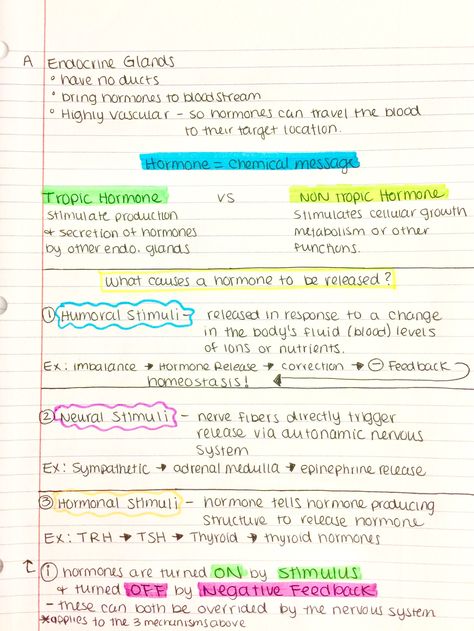 A Endocrine Glands
° have no ducts
° bring hormones to bloodstream
° Highly vascular - so hormones can travel the blood
to their target location.
Hormone = chemical message
Tropic Hormone vs NON Tropic Hormone
stimulate production
& secretion of hormones
by other endo. glands
stimulates cellular growth
metabolism or other
functions.
What causes a hormone to be released?
① Humoral Stimuli - released in response to a change
in the body's fluid (blood) levels
of ions or nutrients.
Ex: imbalance → Hormone Release → correction → ⊖ Feedback
homeostasis!
② Neural Stimuli - nerve fibers directly trigger
release via autonomic nervous
system
Ex: Sympathetic → adrenal medulla → epinephrine release
③ Hormonal Stimuli - hormone tells hormone producing
structure to release hormone
Ex: TRH → TSH → Thyroid → thyroid hormones
① hormones are turned ON by stimulus
& turned OFF by Negative Feedback
- these can both be overrided by the nervous system
*applies to the 3 mechanisms above